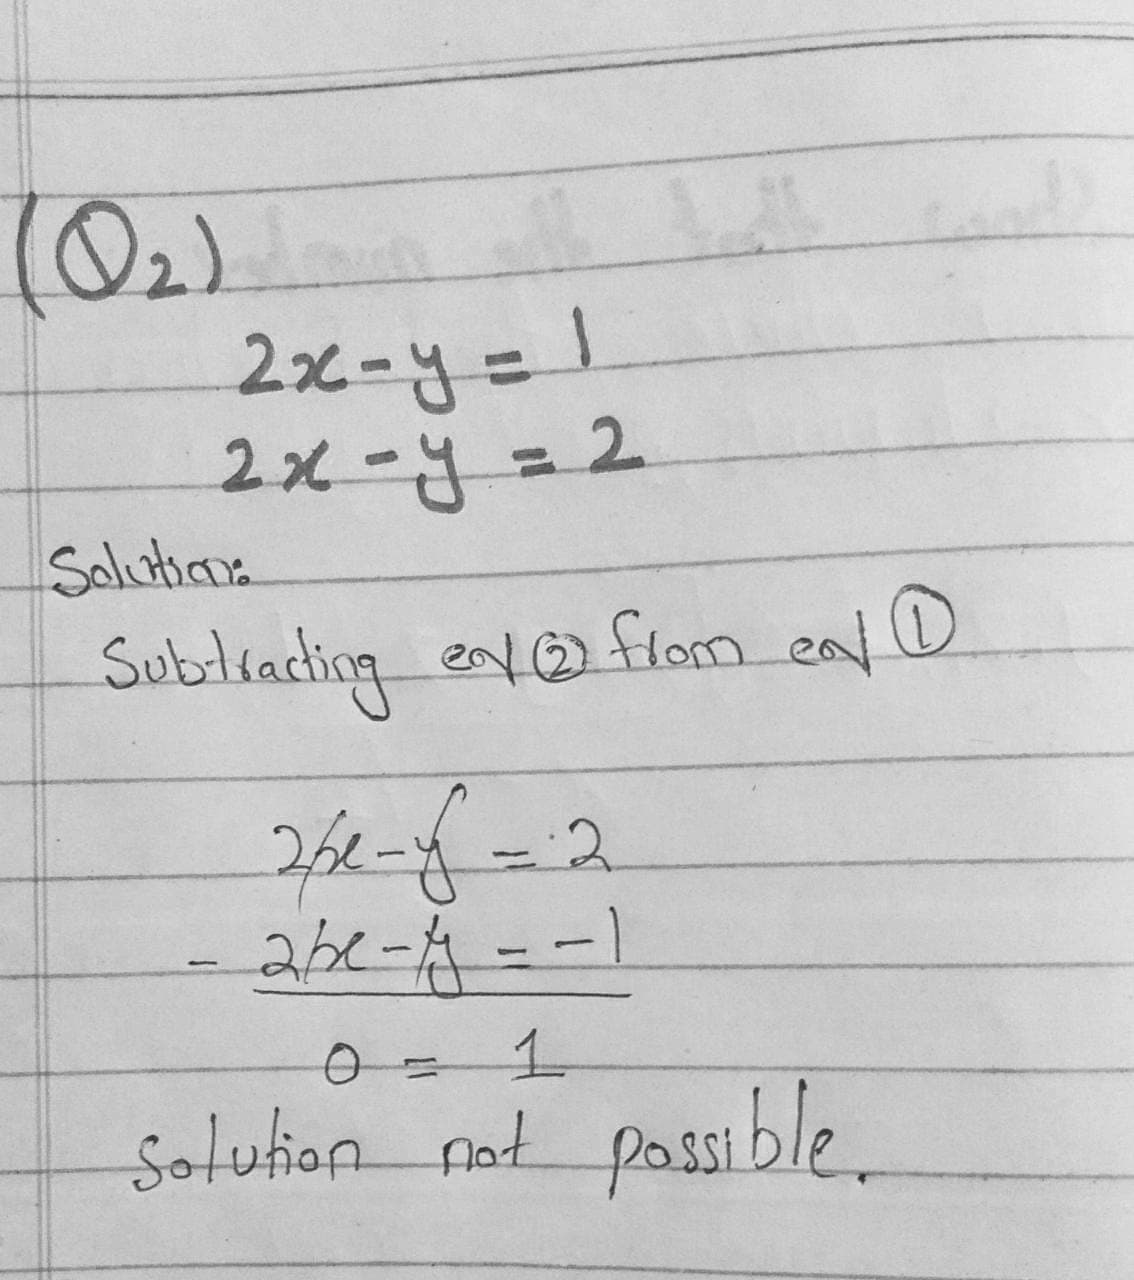 (Q2)
2x-y = 1
2x-y = 2
Solution:
Subtracting eq ② from eq ①
2x-y = 2
- 2x-y = -1
0 = 1
Solution not possible.